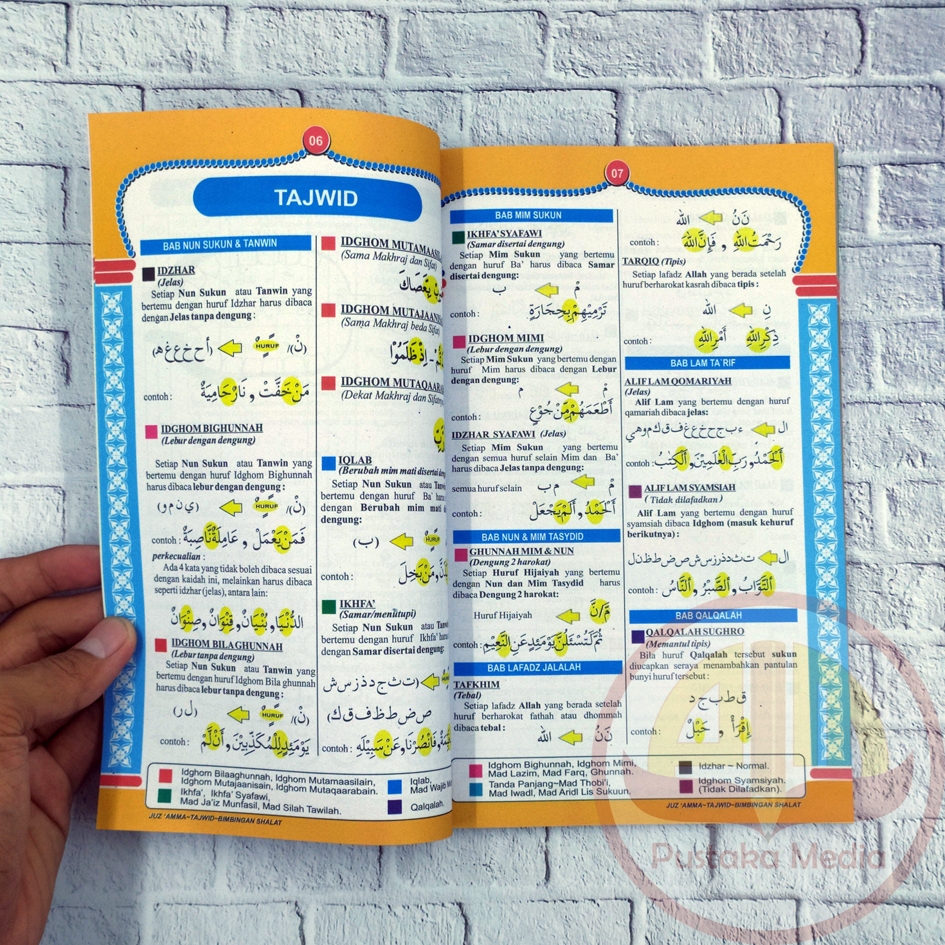 06
TAJWID
BAB NUN SUKUN & TANWIN
IDZHAR
(Jelas)
Setiap Nun Sukun atau Tanwin yang
bertemu dengan huruf Idzhar harus dibaca
dengan Jelas tanpa dengung :
(نْ)/ HURUF (أ ح خ ع غ ه)
contoh : مَنْ خَفَّتْ و نَارٌحَامِيَةٌ
IDGHOM BIGHUNNAH
(Lebur dengan dengung)
Setiap Nun Sukun atau Tanwin yang
bertemu dengan huruf Idghom Bighunnah
harus dibaca lebur dengan dengung :
(نْ)/ HURUF (ي ن م و)
contoh : فَمَنْ يَعْمَلْ و عَامِلَةٌنَّاصِبَةٌ
perkecualian :
Ada 4 kata yang tidak boleh dibaca sesuai
dengan kaidah ini, melainkan harus dibaca
seperti idzhar (jelas), antara lain:
الدُّنْيَا و بُنْيَانٌ و قِنْوَانٌ و صِنْوَانٌ
IDGHOM BILAGHUNNAH
(Lebur tanpa dengung)
Setiap Nun Sukun atau Tanwin yang
bertemu dengan huruf Idghom Bila ghunnah
harus dibaca lebur tanpa dengung :
(نْ)/ HURUF (ل ر)
contoh : يَوْمَئِذٍلِلْمُكَذِّبِيْنَ و أَنْ لَّمْ
IDGHOM
(Sama Makhraj dan Sifat)
بِعَصَاكَ
IDGHOM
(Sama Makhraj beda Sifat)
اِذْ ظَلَمُوْا
IDGHOM
(Dekat Makhraj dan
IQLAB
(Berubah mim mati disertai
Setiap Nun Sukun atau
bertemu dengan huruf Ba'
dengan Berubah mim mati
dengung:
(ب) HURUF
contoh :
IKHFA'
(Samar/menutupi)
Setiap Nun Sukun atau
bertemu dengan huruf Ikhfa'
dengan Samar disertai dengung:
(ت ث ج د ذ ز س ش
ص ض ط ظ ف ق ك)
contoh : فَانْصُرْنَا و عَنْ سَبِيْلِهِ
Idghom Bilaaghunnah, Idghom Mutamaasilain,
Idghom Mutajaanisain, Idghom Mutaqaarabain.
Ikhfa', Ikhfa' Syafawi,
Mad Ja'iz Munfasil, Mad Silah Tawilah.
Iqlab,
Mad Wajib
Qalqalah.
JUZ 'AMMA~TAJWID~BIMBINGAN SHALAT
07
BAB MIM SUKUN
IKHFA' SYAFAWI
(Samar disertai dengung)
Setiap Mim Sukun yang bertemu
dengan huruf Ba' harus dibaca Samar
disertai dengung:
مْ ب
contoh : تَرْمِيْهِمْ بِحِجَارَةٍ
IDGHOM MIMI
(Lebur dengan dengung)
Setiap Mim Sukun yang bertemu dengan
huruf Mim harus dibaca dengan Lebur
dengan dengung:
مْ م
contoh : أَطْعَمَهُمْ مِنْ جُوْعٍ
IDZHAR SYAFAWI (Jelas)
Setiap Mim Sukun yang bertemu
dengan semua huruf selain Mim dan Ba'
harus dibaca Jelas tanpa dengung:
semua huruf selain م ب مْ
contoh : أَلْحَمْدُ و أَلَمْ يَجْعَلْ
BAB NUN & MIM TASYDID
GHUNNAH MIM & NUN
(Dengung 2 harokat)
Setiap Huruf Hijaiyah yang bertemu
dengan Nun dan Mim Tasydid harus
dibaca Dengung 2 harokat:
Huruf Hijaiyah مّ/نّ
contoh : ثُمَّ لَتُسْئَلُنَّ يَوْمَئِذٍ عَنِ النَّعِيْمِ
BAB LAFADZ JALALAH
TAFKHIM
(Tebal)
Setiap lafadz Allah yang berada setelah
huruf berharokat fathah atau dhommah
dibaca tebal :
نَ نُ الله
نَ نُ الله
contoh : رَحْمَتُ اللهِ و فَإِنَّ اللهَ
TARQIQ (Tipis)
Setiap lafadz Allah yang berada setelah
huruf berharokat kasrah dibaca tipis :
نِ الله
ذِكْرِ اللهِ أَمْرِ اللهِ
BAB LAM TA'RIF
ALIF LAM QOMARIYAH
(Jelas)
Alif Lam yang bertemu dengan huruf
qamariah dibaca jelas:
ال ء ب ج ح خ ع غ ف ق ك م و ه ي
contoh : اَلْحَمْدُ و رَبِّ الْعٰلَمِيْنَ و الْكِتٰبُ
ALIF LAM SYAMSIAH
( Tidak dilafadkan )
Alif Lam yang bertemu dengan huruf
syamsiah dibaca Idghom (masuk kehuruf
berikutnya) :
ال ت ث د ذ ر ز س ش ص ض ط ظ ل ن
contoh : اَلتَّوَّابُ و الصَّبْرُ و النَّاسُ
BAB QALQALAH
QALQALAH SUGHRO
(Memantul tipis)
Bila huruf Qalqalah tersebut sukun
diucapkan seraya menambahkan pantulan
bunyi huruf tersebut :
ق ط ب ج د
contoh : اِقْرَأْ و حَبْلٌ
Idghom Bighunnah, Idghom Mimi,
Mad Lazim, Mad Farq, Ghunnah.
Tanda Panjang~Mad Thobi'i,
Mad Iwadl, Mad Aridl Lis Sukuun.
Idzhar ~ Normal.
Idghom Syamsiyah.
(Tidak Dilafadkan).
JUZ 'AMMA~TAJWID~BIMBINGAN SHALAT
Pustaka Media